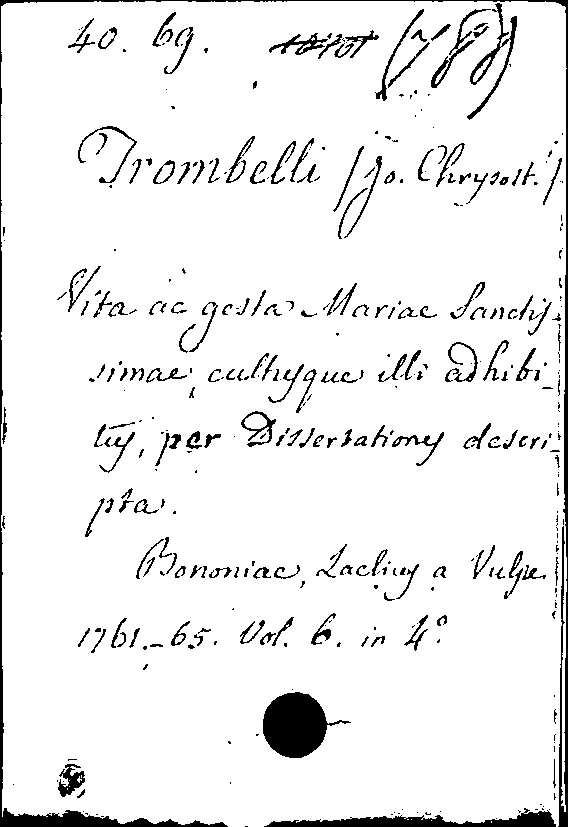 40. 69.
Trombelli /Jo. Chrysost./
Vita ac gesta Mariae Sanctis-
simae, cultusque illi adhibi-
tus, per Dissertationes descri-
pta.
Bononiae, Laelius a Vulpe
1761.-65. Vol. 6. in 4º